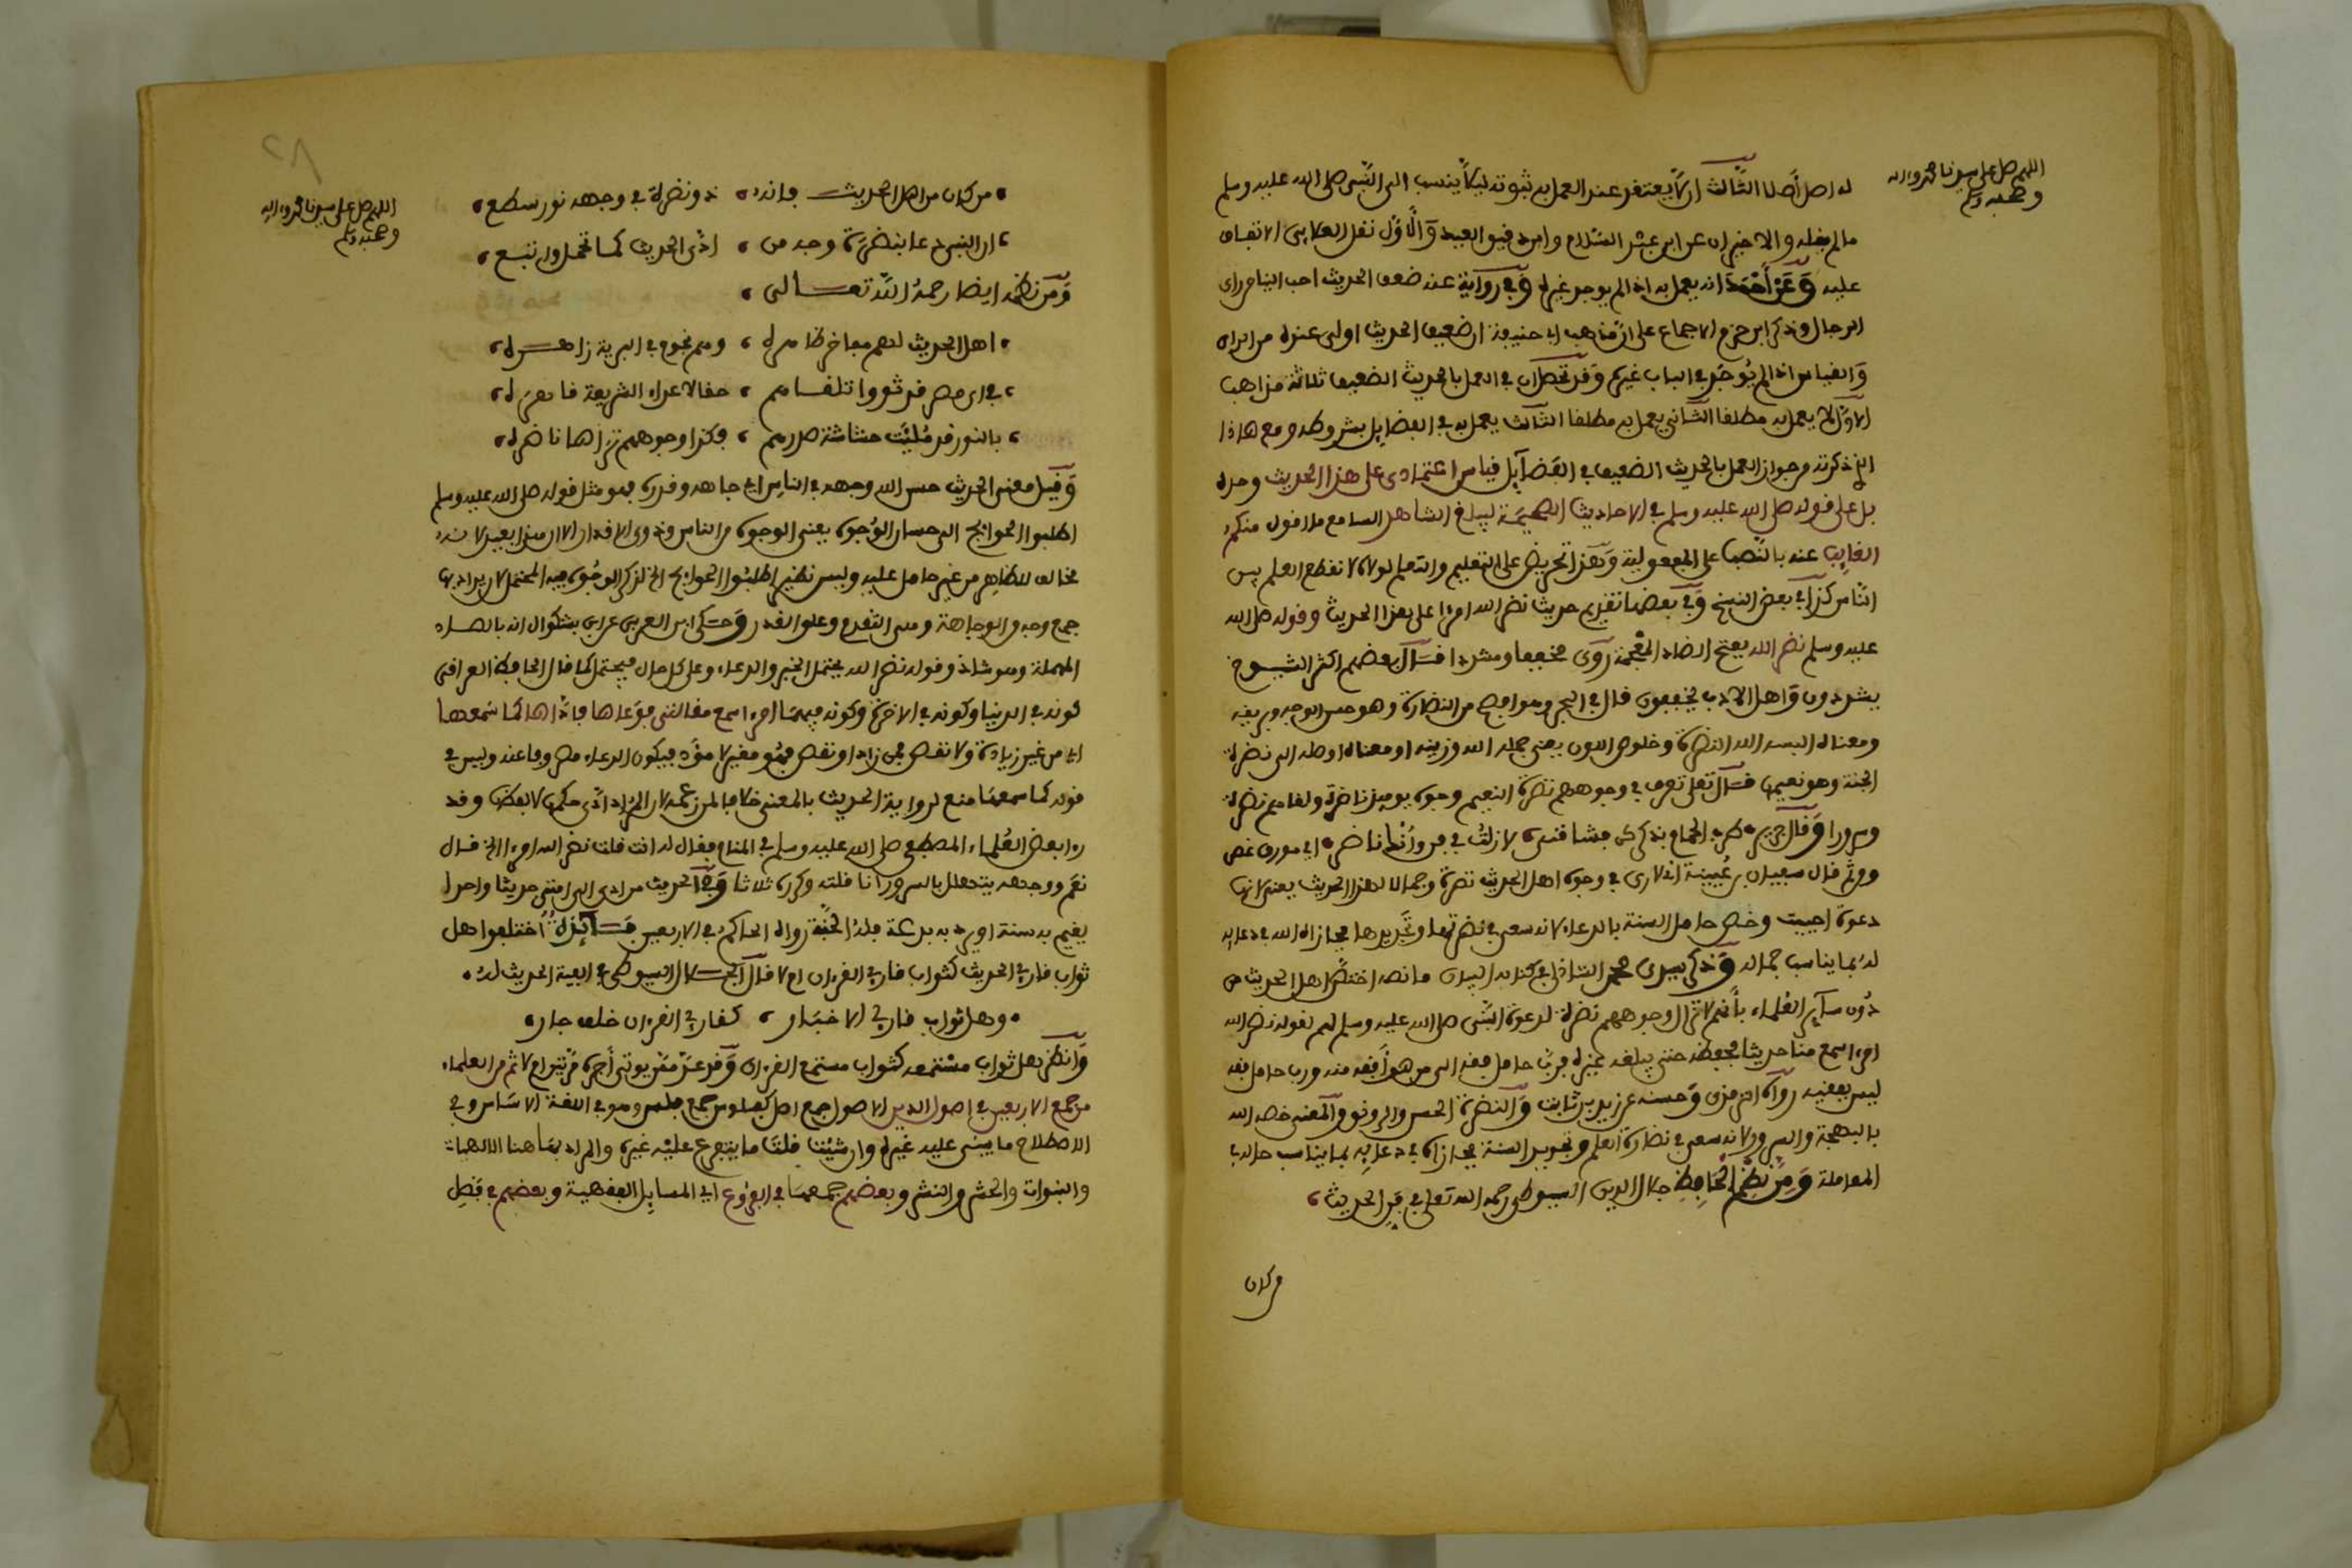 اللهم صل على سيدنا محمد وءاله
وصحبه وسلم
له اصل أصلا الثالث ان لا يعتقد عند العمل به ثبوته ليلا ينسب الى النبي صلى الله عليه وسلم
ما لم يقله والاخيران عن ابن عبد السلام وابن دقيق العيد والاول نقل العلاءي الاتفاق
عليه وعن أحمد انه يعمل به اذا لم يوجد غيره وفي رواية عنه ضعيف الحديث احب الينا من راي
الرجال وذكر ابن حزم الاجماع على ان مذهب ابي حنيفة ان ضعيف الحديث اولى عنده من الراي
والقياس اذا لم يوجد في الباب غيره وقد تحصل ان في العمل بالحديث الضعيف ثلاثة مذاهب
الاول لا يعمل به مطلقا الثاني يعمل به مطلقا الثالث يعمل به في الفضايل بشروطه ومع هاذا
الذي ذكرته من جواز العمل بالحديث الضعيف في الفضآيل فليس اعتمادي على هذا الحديث وحده
بل على قوله صلى الله عليه وسلم في الاحاديث الصحيحة ليبلغ الشاهد السامع ما اقول منكم
الغايب عنه بالنصب على المفعولية وهذا تحريض على التعليم والتعلم لولاه لانقطع العلم بين
الناس كذا في بعض النسخ وفي بعضها تقديم حديث نضر الله امرءا على هذا الحديث وقوله صلى الله
عليه وسلم نضر الله بفتح الضاد المعجمة روي مخففا ومشددا قال بعضهم اكثر الشيوخ
يشددون واهل الادب يخففون قال في الحجر وهو افصح من النضارة وهو حسن الوجه وبريقه
ومعناه البسه الله النضرة وخلوص اللون يعني جمله الله وزينه او معناه اوصله الى نضرة
الجنة وهو نعيمها قال تعلى تعرف في وجوههم نضرة النعيم وجوه يوميذ ناضرة ولقاهم نضرة
وسرورا وقال جرير طرب الحمام بذي فشاقني لا زلت في وأيك ناضر اي مورق غض
ومن ثم قال سفيان بن عيينة اني لارى في وجوه اهل الحديث نضرة وجمالا لهذا الحديث يعني لانها
دعوة اجيبت وخص حامل السنة بالدعاء لانه سعى في نضرتها وتجديدها فجازاه الله في دعايه
له بما يناسب حماله وذكر سيدي محمد الشاذلي في كتابه البيان ما نصه اختص اهل الحديث من
دون سآير العلماء بأنهم لا تزال وجوههم نضرة لدعوة النبي صلى الله عليه وسلم لهم لقوله نضر الله
امرءا سمع منا حديثا فحفظه حتى يبلغه غيره فرب حامل فقه الى من هو أفقه منه ورب حامل فقه
ليس بفقيه رواه الترمذي وحسنه عن زيد بن ثابت والنضرة الحسن والرونق والمعنى خصه الله
بالبهجة والسرور لانه سعى في نضارة العلم وتجديد السنة فجازاه في دعايه بما يناسب حاله في
المعاملة ومن نظم الحافظ جلال الدين السيوطي رحمه الله تعلى في الحديث
من كان
اللهم صل على سيدنا محمد وءاله
وصحبه وسلم
من كان من اهل الحديث فانه ذو نضرة في وجهه نور سطع
ان النبي دعا بنضرة وجه من ادى الحديث كما تحمل واتبع
ومن نظمه ايضا رحمه الله تعالى
اهل الحديث لهم مفاخر ظاهره وهم نجوم في البرية زاهره
في اي مصر قد ثووا تلقاهم حقا لاعداء الشريعة قاهره
بالنور قد مليت حشاشة صدرهم فكذا وجوههم تراها ناضره
وقيل معنى الحديث حسن الله وجهه في الناس اي جاهه وقدره فهو مثل قوله صلى الله عليه وسلم
اطلبوا الحوايج الى حسان الوجوه يعني الوجوه من الناس وذوي الاقدار الا ان هذا بعيد لانه
مخالف للظاهر من غير حامل عليه وليس نظير اطلبوا الحوايج الخ لذكر الوجوه فيه المحتمل لان يراد بها
جمع وجه من الوجاهة وهي التقدم وعلو القدر وحكى ابن العربي عن ابن بشكوال انه بالصاد
المهملة وهو شاذ وقوله نضر الله يحتمل الخبر والدعاء وعلى كل حال فيحتمل كما قال الحافظ العراقي
كونه في الدنيا وكونه في الاخرة وكونه فيهما امرءا سمع مقالتي فوعاها فأداها كما سمعها
اي من غير زيادة ولا نقص فمن زاد او نقص فهو مغير لا مؤد فيكون الدعاء مصروفا عنه وليس في
قوله كما سمعها منع لرواية الحديث بالمعنى خلافا لمن زعمه لان المراد ادى حكمها لا لفظها وقد
راى بعض العلماء المصطفى صلى الله عليه وسلم في المنام فقال له انت قلت نضر الله امرءا الخ قال
نعم ووجهه يتهلل بالسرور انا قلته وكرره ثلاثا وفي الحديث من ادى الى امتي حديثا واحدا
يقيم به سنة او يرد به بدعة فله الجنة رواه الحاكم في الاربعين فايدة اختلفوا هل
ثواب قاري الحديث كثواب قاري القرءان ام لا قال الجلال السيوطي في الفية الحديث له
وهل ثواب قاري الاخبار كقاري القرءان خلف جار
وانظر هل ثواب مستمعه كثواب مستمع القرءان وقد عد ممن يوتى أجره مرتين ام لا ثم من العلماء
من جمع الاربعين في اصول الدين الاصول جمع اصل كفلوس جمع فلس وهو في اللغة الاساس وفي
الاصطلاح ما يبنى عليه غيره وان شئت قلت ما يتفرع عليه غيره والمراد بها هنا الالاهيات
والنبوات والحشر والنشر وبعضهم جمعها في الفروع اي المسايل الفقهية وبعضهم في فضل